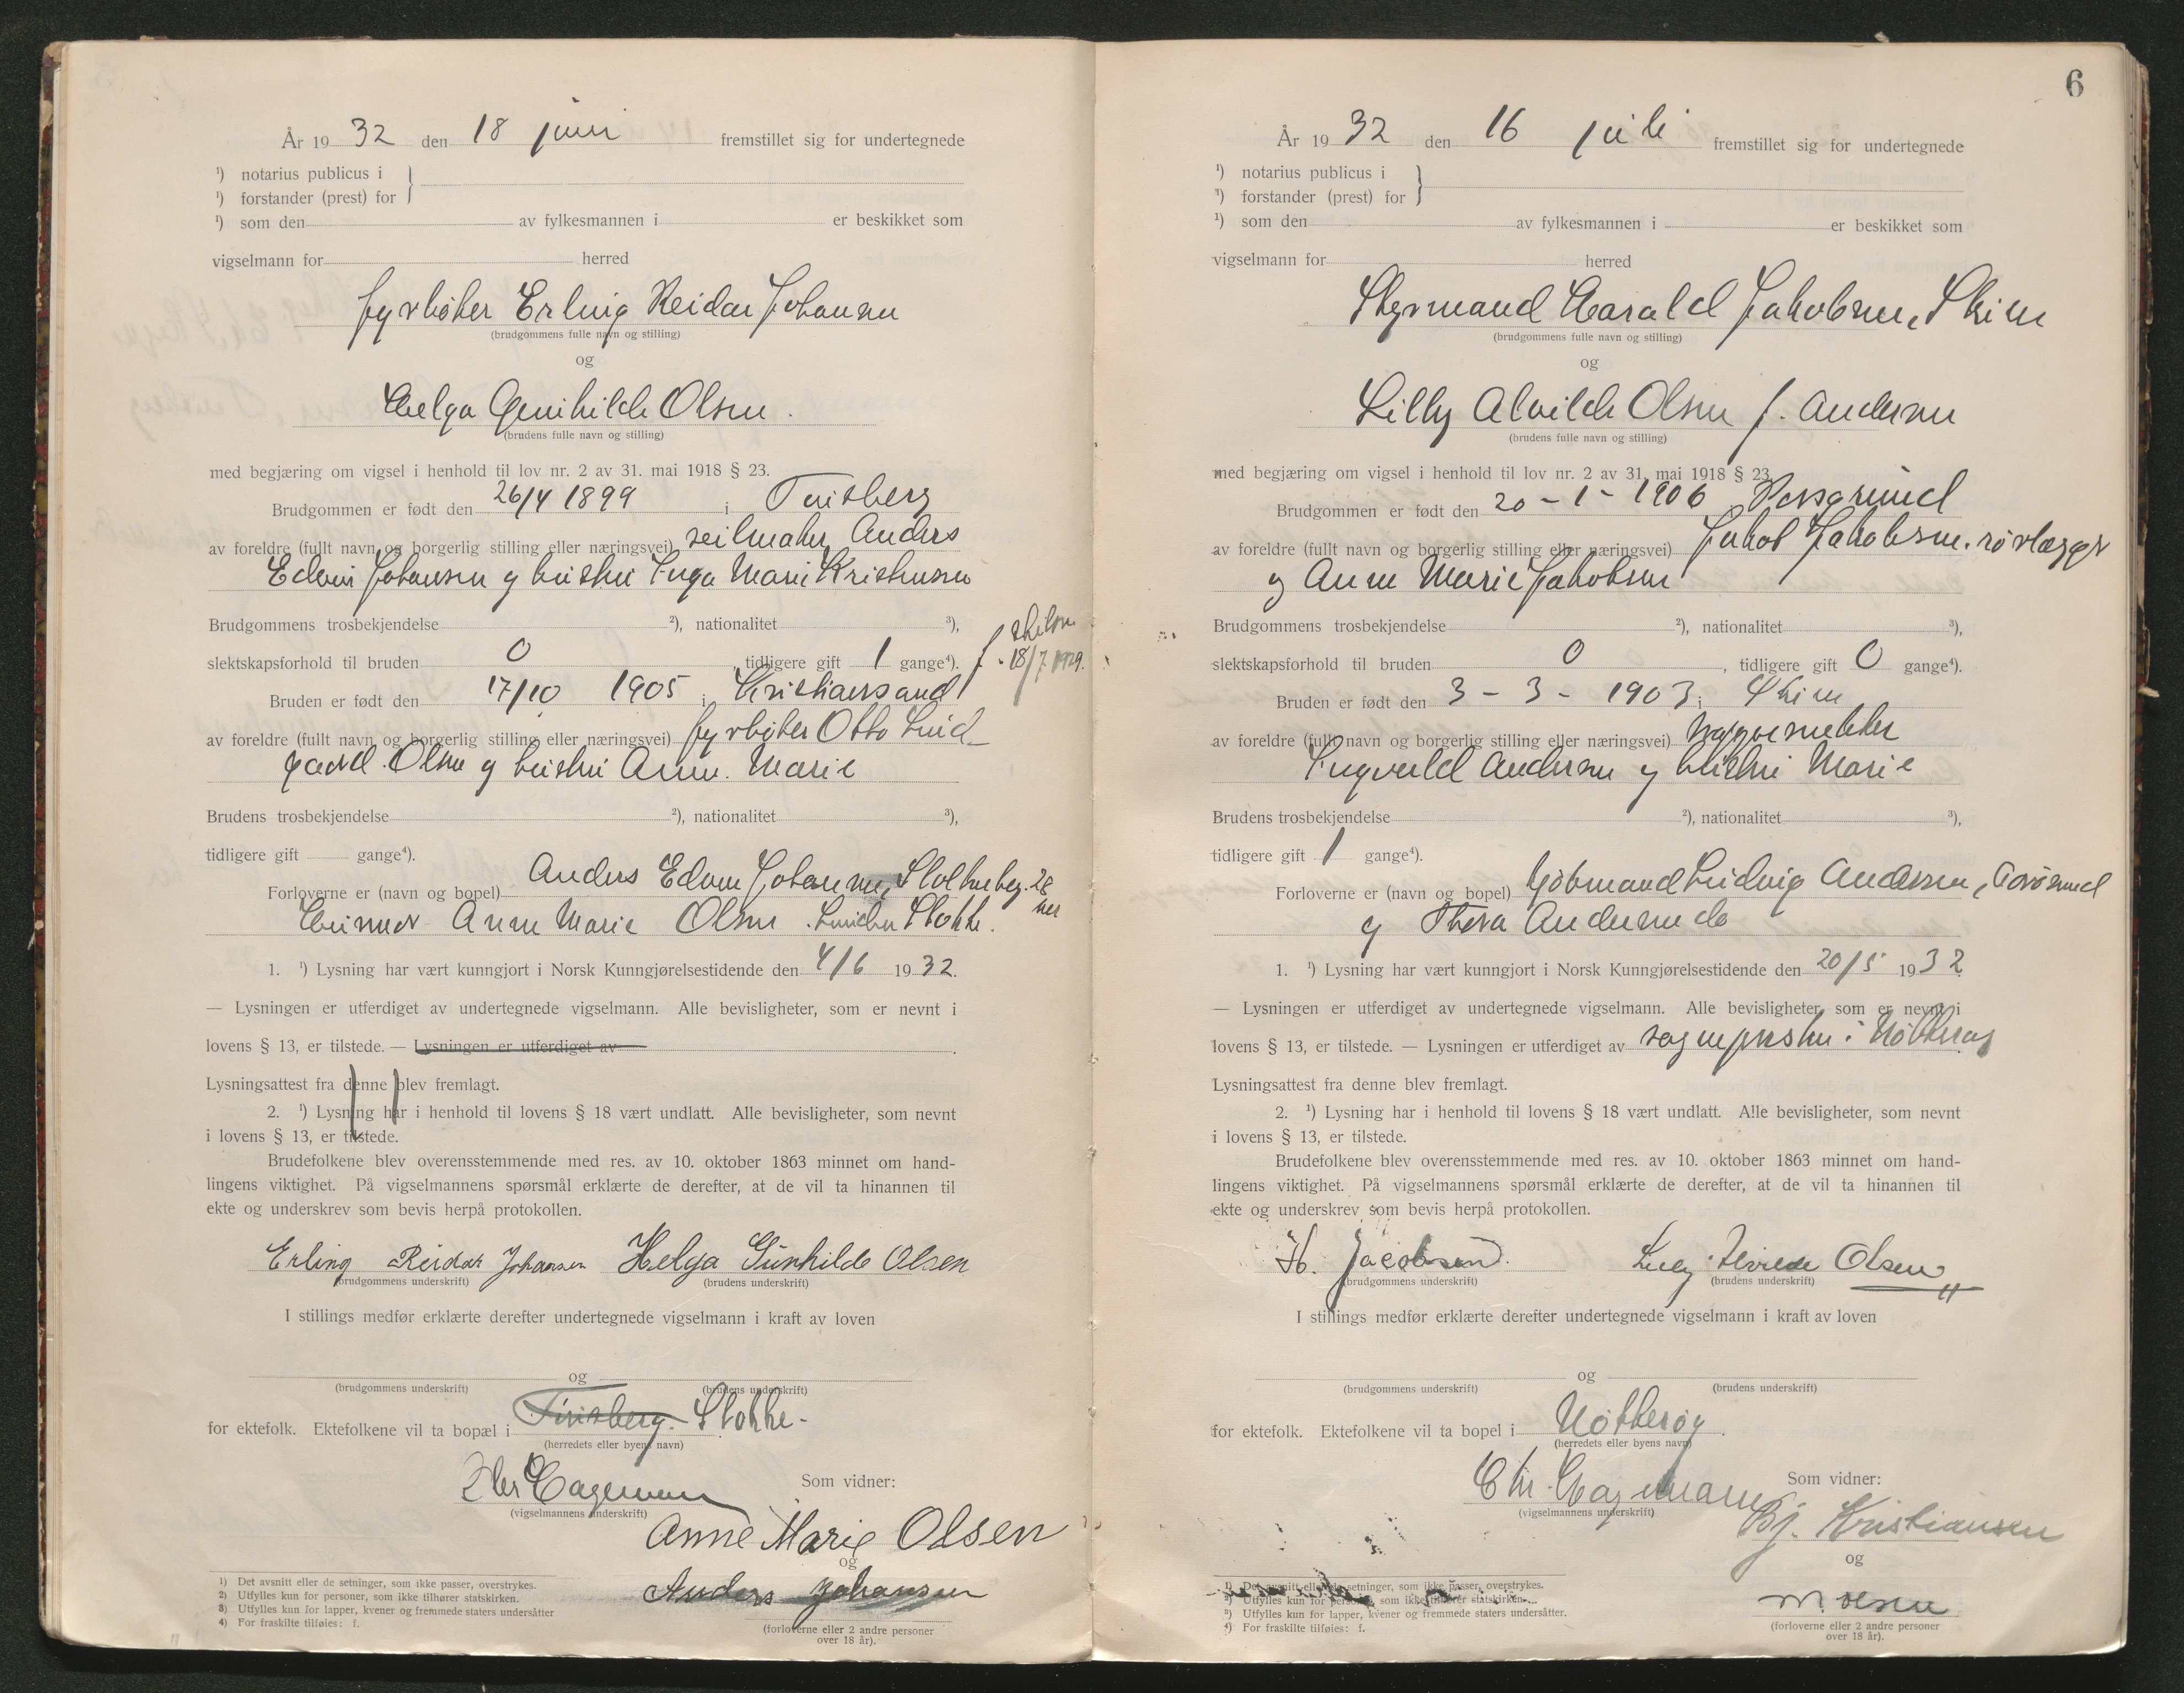 År 19 32 den 18 juni fremstillet sig for undertegnede
¹) notarius publicus i
¹) forstander (prest) for
¹) som den av fylkesmannen i er beskikket som
vigselmann for herred
fyrbøter Erling Reidar Johansen
(brudgommens fulle navn og stilling)
og
Helga Gunhilde Olsen.
(brudens fulle navn og stilling)
med begjæring om vigsel i henhold til lov nr. 2 av 31. mai 1918 § 23.
Brudgommen er født den 26/4 1899 i Tønsberg
av foreldre (fullt navn og borgerlig stilling eller næringsvei) seilmaker Anders
Edvin Johansen og hustru Inga Marie Kristensen
Brudgommens trosbekjendelse ²), nationalitet ³),
slektskapsforhold til bruden 0, tidligere gift 1 gange⁴). f.
18/7 1929.
Bruden er født den 17/10 1905 i Kristiansand
av foreldre (fullt navn og borgerlig stilling eller næringsvei) fyrbøter Otto Lud-
gard Olsen og hustru Anne Marie
Brudens trosbekjendelse ²), nationalitet ³),
tidligere gift gange⁴).
Forloverne er (navn og bopel) Anders Edvin Johansen, 28
her
Anne Marie Olsen Stokke.
1. ¹) Lysning har vært kunngjort i Norsk Kunngjørelsestidende den 4/6 1932.
— Lysningen er utferdiget av undertegnede vigselmann. Alle bevisligheter, som er nevnt i
lovens § 13, er tilstede. — Lysningen er utferdiget av
Lysningsattest fra denne blev fremlagt.
2. ¹) Lysning har i henhold til lovens § 18 vært undlatt. Alle bevisligheter, som nevnt
i lovens § 13, er tilstede.
Brudefolkene blev overensstemmende med res. av 10. oktober 1863 minnet om hand-
lingens viktighet. På vigselmannens spørsmål erklærte de derefter, at de vil ta hinannen til
ekte og underskrev som bevis herpå protokollen.
Erling Reidar Johansen Helga Gunhilde Olsen
(brudgommens underskrift) (brudens underskrift)
I stillings medfør erklærte derefter undertegnede vigselmann i kraft av loven
og
(brudgommens underskrift) (brudens underskrift)
for ektefolk. Ektefolkene vil ta bopæl i Tønsberg. Stokke.
(herredets eller byens navn)
Chr Hagemann Som vidner:
(vigselmannens underskrift)
Anne Marie Olsen
og
Anders Johansen
(forloverne eller 2 andre personer
over 18 år).
1) Det avsnitt eller de setninger, som ikke passer, overstrykes.
2) Utfylles kun for personer, som ikke tilhører statskirken.
3) Utfylles kun for lapper, kvener og fremmede staters undersåtter
4) For fraskilte tilføies: f.
6
År 19 32 den 16 juli fremstillet sig for undertegnede
¹) notarius publicus i
¹) forstander (prest) for
¹) som den av fylkesmannen i er beskikket som
vigselmann for herred
Styrmand Harald Jakobsen, Skien
(brudgommens fulle navn og stilling)
og
Lilly Alvilde Olsen f. Andersen
(brudens fulle navn og stilling)
med begjæring om vigsel i henhold til lov nr. 2 av 31. mai 1918 § 23.
Brudgommen er født den 20-1-1906 Porsgrund
av foreldre (fullt navn og borgerlig stilling eller næringsvei) Jakob Jakobsen. rørlægger
og Anne Marie Jakobsen
Brudgommens trosbekjendelse ²), nationalitet ³),
slektskapsforhold til bruden 0, tidligere gift 0 gange⁴).
Bruden er født den 3-3-1903 i Skien
av foreldre (fullt navn og borgerlig stilling eller næringsvei) byggmester
Ingvald Andersen og hustru Marie
Brudens trosbekjendelse ²), nationalitet ³),
tidligere gift 1 gange⁴).
Forloverne er (navn og bopel) Kjøbmand Ludvig Andersen, Årøsund
og Thora Andersen do
1. ¹) Lysning har vært kunngjort i Norsk Kunngjørelsestidende den 20/5 1932
— Lysningen er utferdiget av undertegnede vigselmann. Alle bevisligheter, som er nevnt i
lovens § 13, er tilstede. — Lysningen er utferdiget av sogneprsten i Nøtterøy
Lysningsattest fra denne blev fremlagt.
2. ¹) Lysning har i henhold til lovens § 18 vært undlatt. Alle bevisligheter, som nevnt
i lovens § 13, er tilstede.
Brudefolkene blev overensstemmende med res. av 10. oktober 1863 minnet om hand-
lingens viktighet. På vigselmannens spørsmål erklærte de derefter, at de vil ta hinannen til
ekte og underskrev som bevis herpå protokollen.
H. Jacobsen. Lilly Alvilde Olsen
(brudgommens underskrift) (brudens underskrift)
I stillings medfør erklærte derefter undertegnede vigselmann i kraft av loven
og
(brudgommens underskrift) (brudens underskrift)
for ektefolk. Ektefolkene vil ta bopel i Nøtterøy.
(herredets eller byens navn)
Chr. Hagemann Som vidner:
(vigselmannens underskrift)
Bj. Kristiansen
og
M. Olsen
(forloverne eller 2 andre personer
over 18 år).
¹) Det avsnitt eller de setninger, som ikke passer, overstrykes.
²) Utfylles kun for personer, som ikke tilhører statskirken.
³) Utfylles kun for lapper, kvener og fremmede staters undersåtter.
⁴) For fraskilte tilføies: f.